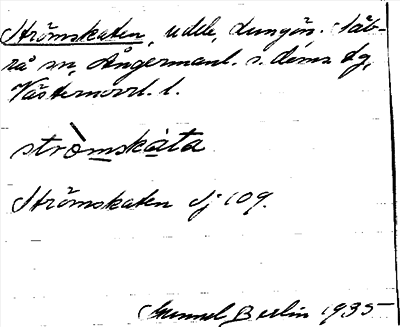 Strömskaten, udde, Lungön. Säb-
rå sn, Ångermanl. s. doms dg,
Västernorrl. l.
stròmskàta
Strömskaten Sj 109.
Gunnel Berlin 1935